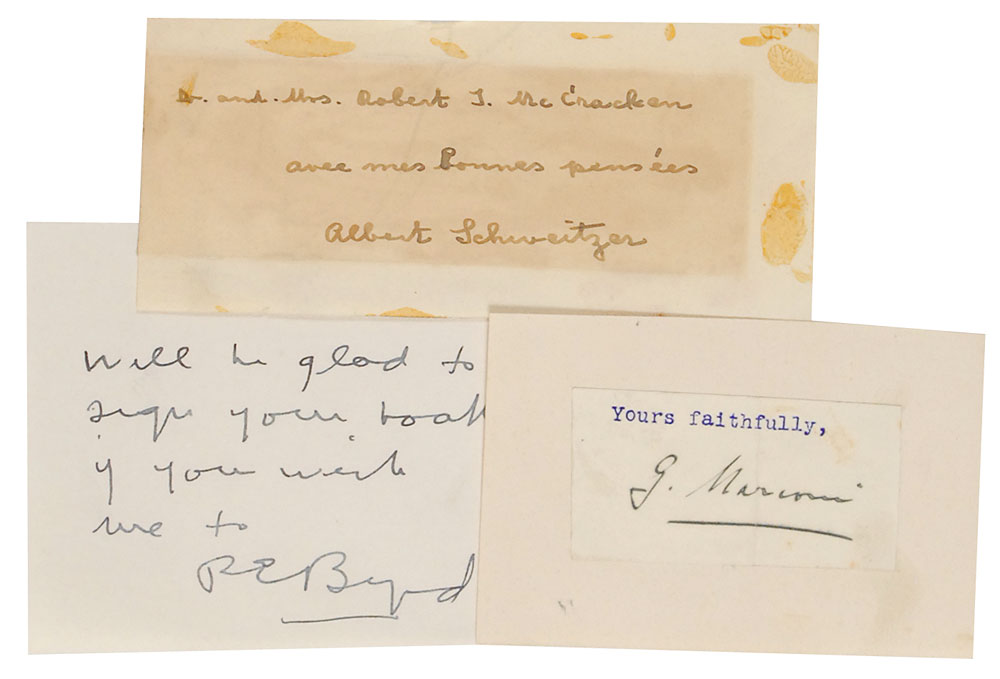 Dr. and. Mrs. Robert J. Mc Cracken
avec mes bonnes pensées
Albert Schweitzer
Will be glad to
sign your book
if you wish
me to
R E Byrd
Yours faithfully,
G. Marconi